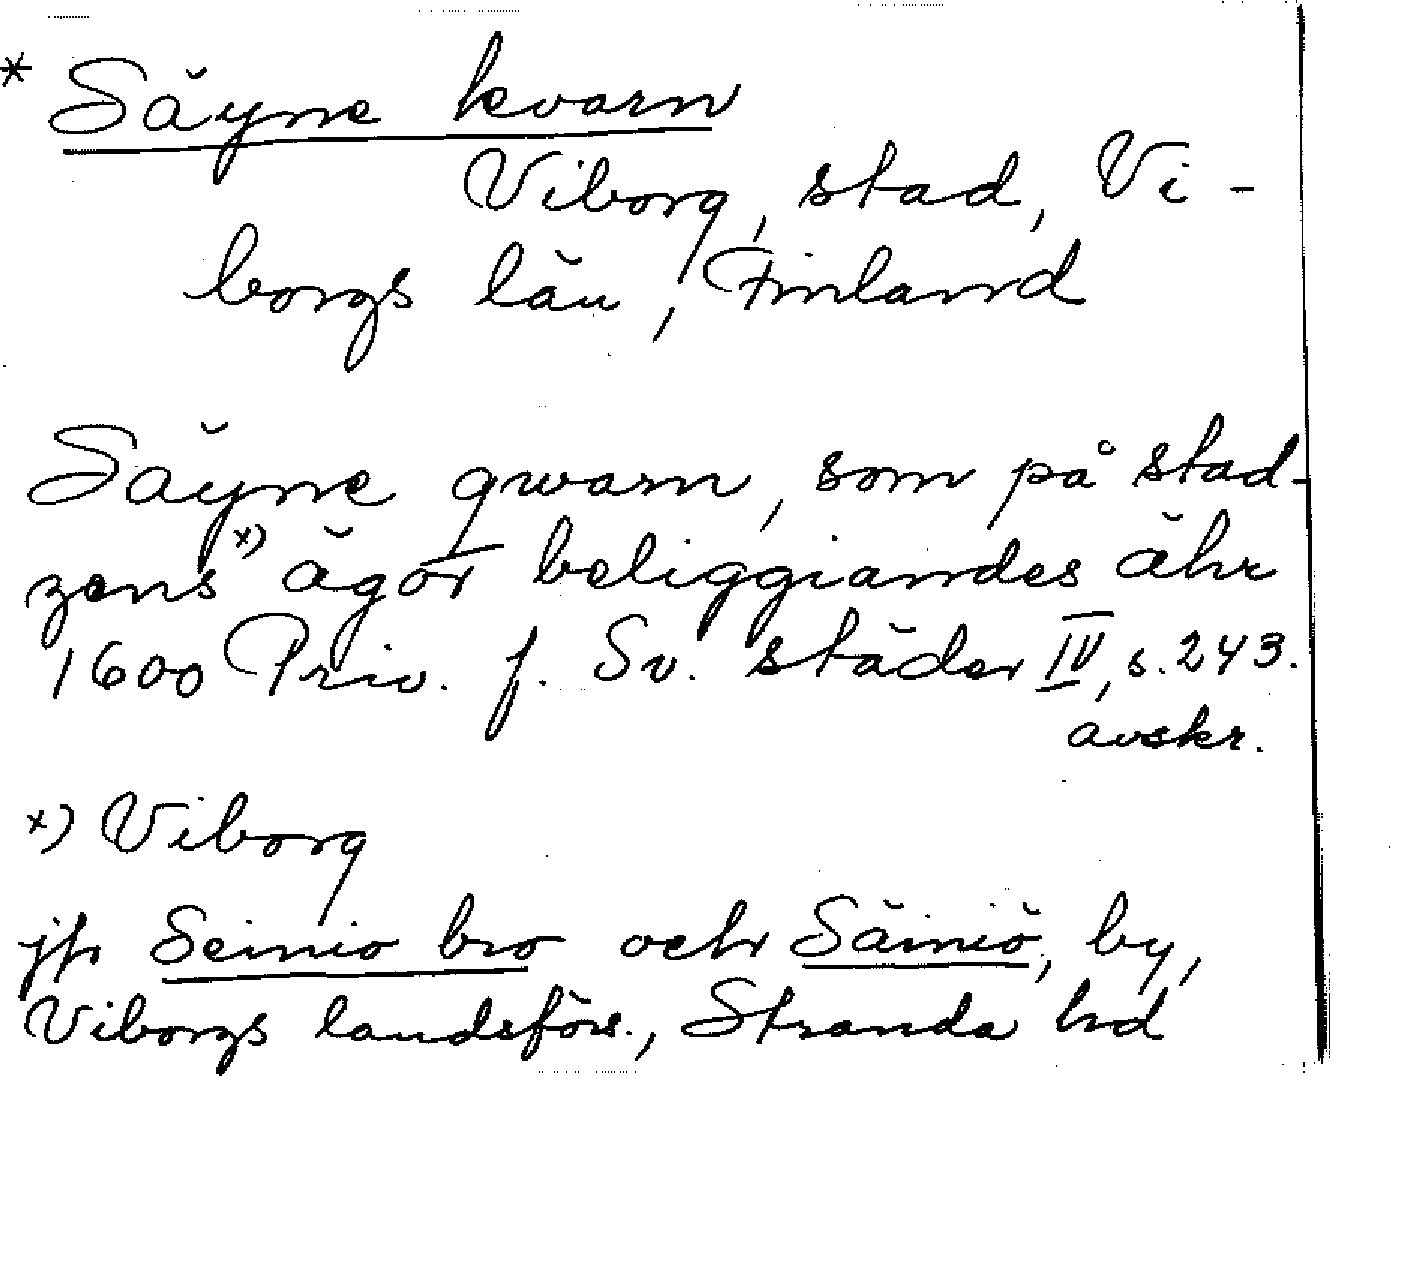 * Säyne kvarn
Viborg, stad, Vi-
borgs län, Finland
Säyne qwarn, som på stad-
zens x) ägor beliggiandes ähr
1600 Priv. f. Sv. städer IV, s. 243.
avskr.
x) Viborg
jfr Seinio bro och Säiniö, by,
Viborgs landsförs., Stranda hd